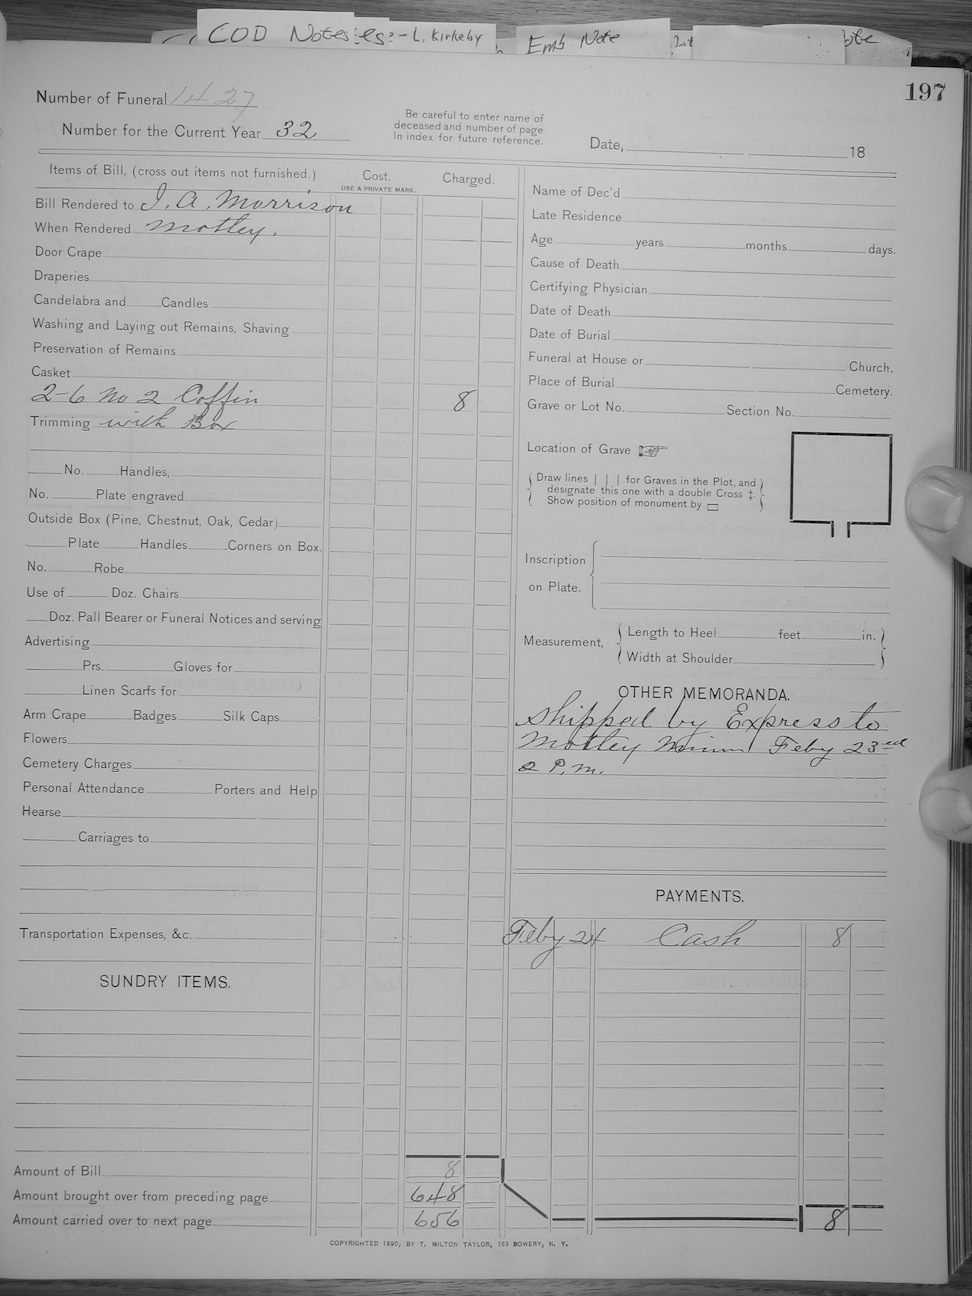 COD Notes es: - L. Kirkeby
Emb Note
ote
197
Number of Funeral 1427
Number for the Current Year 32
Be careful to enter name of
deceased and number of page
in index for future reference.
Date, 18
Items of Bill, (cross out items not furnished.) Cost. Charged.
USE A PRIVATE MARK.
Bill Rendered to J. A. Morrison
When Rendered Motley.
Door Crape
Draperies
Candelabra and Candles
Washing and Laying out Remains, Shaving
Preservation of Remains
Casket
2-6 No 2 Coffin 8
Trimming with Box
No. Handles,
No. Plate engraved
Outside Box (Pine, Chestnut, Oak, Cedar)
Plate Handles Corners on Box.
No. Robe
Use of Doz. Chairs
Doz. Pall Bearer or Funeral Notices and serving
Advertising
Prs. Gloves for
Linen Scarfs for
Arm Crape Badges Silk Caps
Flowers
Cemetery Charges
Personal Attendance Porters and Help
Hearse
Carriages to
Transportation Expenses, &c.
SUNDRY ITEMS.
Amount of Bill 8
Amount brought over from preceding page 648
Amount carried over to next page 656
Name of Dec'd
Late Residence
Age years months days.
Cause of Death
Certifying Physician
Date of Death
Date of Burial
Funeral at House or Church.
Place of Burial Cemetery.
Grave or Lot No. Section No.
Location of Grave
Draw lines | | | for Graves in the Plot, and
designate this one with a double Cross ‡.
Show position of monument by ▭
Inscription
on Plate.
Measurement, Length to Heel feet in.
Width at Shoulder
OTHER MEMORANDA.
Shipped by Express to
Motley Minn Feby 23rd
2 P.M.
PAYMENTS.
Feby 24 Cash 8
8
COPYRIGHTED 1890, BY T. MILTON TAYLOR, 163 BOWERY, N. Y.